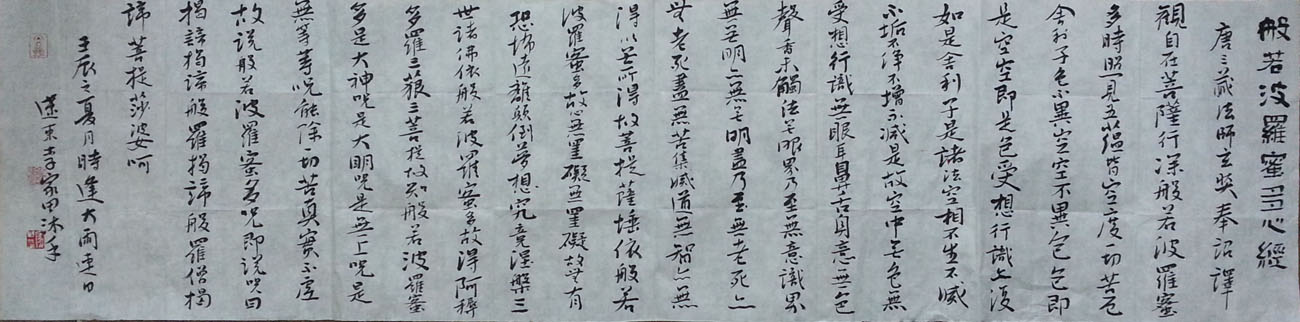 般若波羅蜜多心經
唐三藏法師玄奘奉詔譯
觀自在菩薩行深般若波羅蜜
多時照見五蘊皆空度一切苦厄
舍利子色不異空空不異色色即
是空空即是色受想行識亦復
如是舍利子是諸法空相不生不滅
不垢不淨不增不減是故空中无色無
受想行識無眼耳鼻舌身意無色
聲香味觸法无眼界乃至無意識界
無无明亦無无明盡乃至無老死亦
無老死盡無苦集滅道無智亦無
得以无所得故菩提薩埵依般若
波羅蜜多故心無罣礙無罣礙故無有
恐怖遠離顛倒夢想究竟涅槃三
世諸佛依般若波羅蜜多故得阿耨
多羅三藐三菩提故知般若波羅蜜
多是大神咒是大明咒是無上咒是
無等等咒能除一切苦真實不虛
故說般若波羅蜜多咒即說咒曰
揭諦揭諦般羅揭諦般羅僧揭
諦菩提莎婆呵
壬辰之夏月時逢大雨連日
遼東李家甲沐手